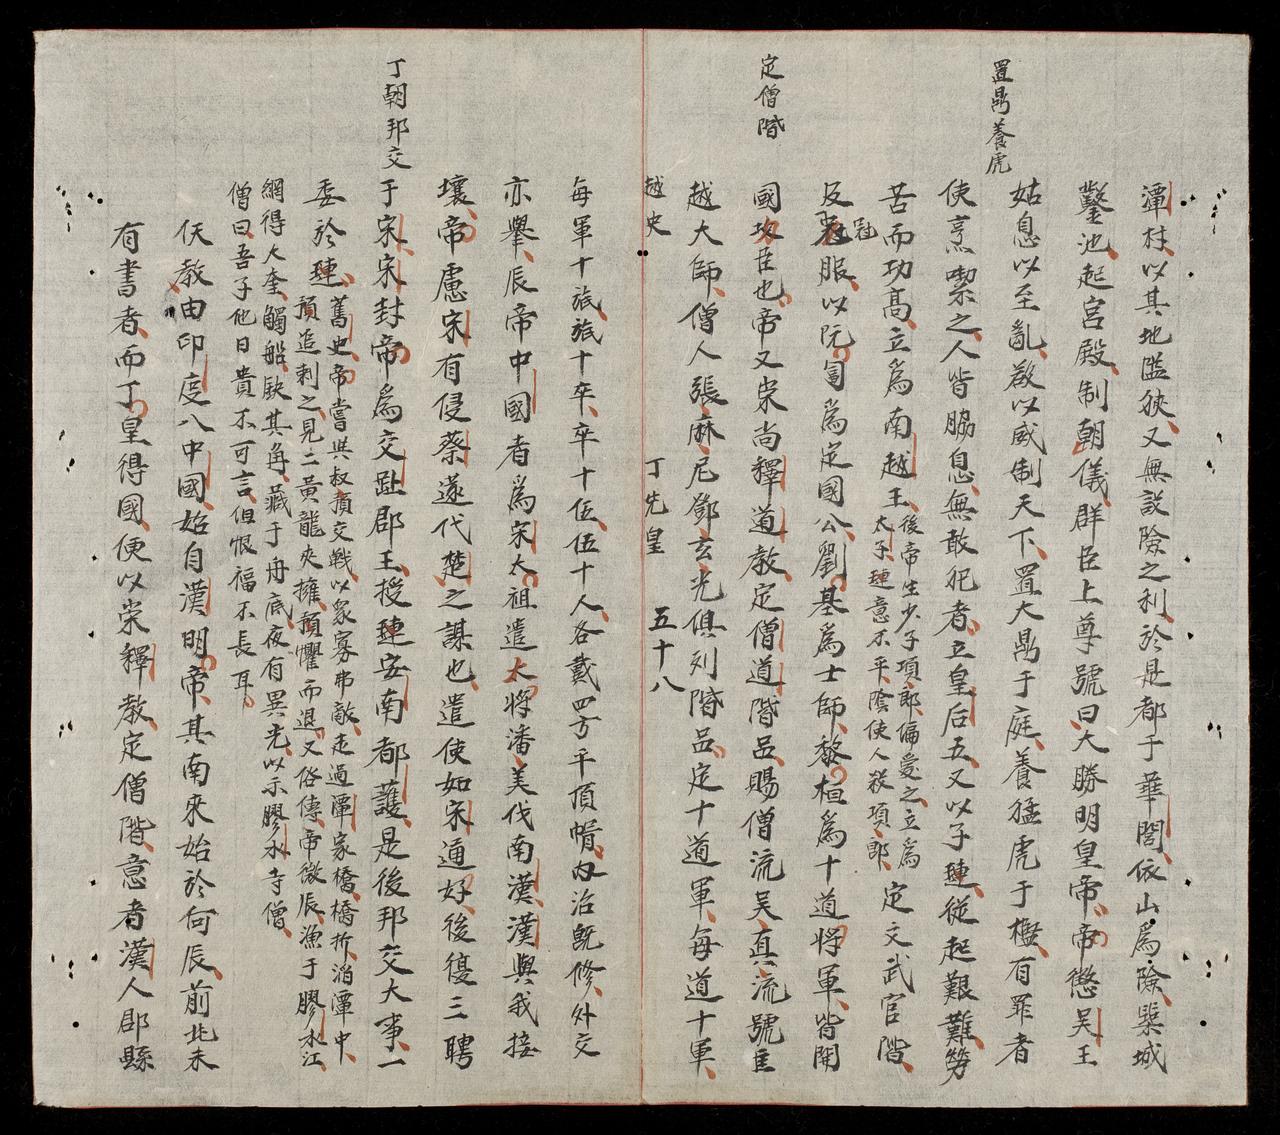 置鼎養虎
潭村以其地隘狹又無設險之利於是都于華閭依山爲險築城
鑿池起宮殿制朝儀群臣上尊號曰大勝明皇帝帝懲吳王
姑息以至亂欲以威制天下置大鼎于庭養猛虎于檻有罪者
使烹喫之人皆脇息無敢犯者立皇后五又以子璉從起艱難勞
苦而功高立爲南越王
後帝生少子項郎偏愛之立爲
太子璉意不平陰使人殺項郎
定文武官階
及冠服以阮匐爲定國公劉基爲士師黎桓爲十道將軍皆開
冠
定僧階
國功臣也帝又崇尚釋道教定僧道階品賜僧流吳真流號匡
越大師僧人張麻尼鄧玄光俱列階品定十道軍每道十軍
越史 丁先皇 五十八
每軍十旅旅十卒卒十伍伍十人各戴四方平頂帽內治既修外交
亦舉辰帝中國者爲宋太祖遣大將潘美伐南漢漢與我接
壤帝慮宋有侵蔡遂代楚之謀也遣使如宋通好後復三聘
丁朝邦交
于宋宋封帝爲交趾郡王授璉安南都護是後邦交大事一
委於璉
舊史帝嘗與叔預交戰以衆寡弗敵走過潭家橋橋折滔潭中
預追刺之見二黃龍夾擁預懼而退又俗傳帝微辰漁于膠水江
網得大奎觸船缺其角藏于舟底夜有異光以示膠水寺僧
僧曰吾子他日貴不可言但恨福不長耳
仸教由印度入中國始自漢明帝其南來始於何辰前此未
有書者而丁皇得國便以崇釋教定僧階意者漢人郡縣